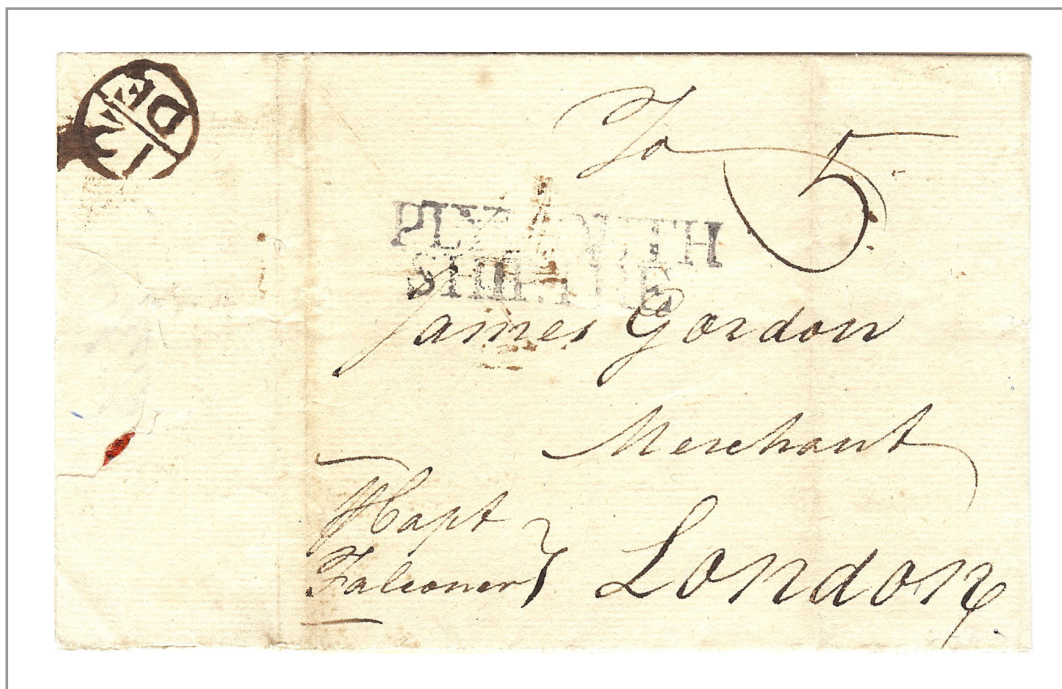 To 5
PLYMOUTH
SHIP LRE
James Gordon
Merchant
Capt
Falconer
London
DE